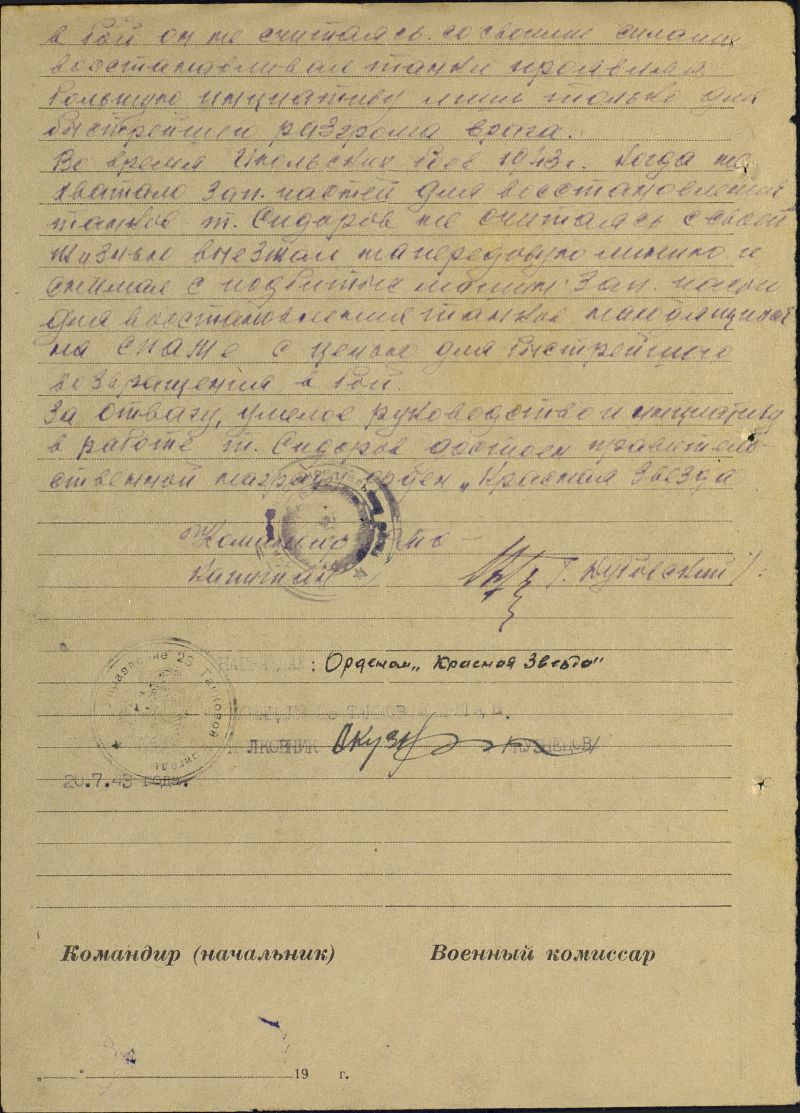 в бой он не считаясь со своими силами
восстанавливал танки проявляя
большую инициативу лишь только для
быстрейшего разгрома врага.
Во время Июльских боев 1943 г. когда не
хватало зап. частей для восстановления
танков т. Сидоров не считаясь с своей
жизнью выезжал на передовую линию и
снимал с подбитых машин зап. части
для восстановления танков находящихся
на СПАМе с целью для быстрейшего
возвращения в бой.
За отвагу, умелое руководство и инициативу
в работе т. Сидоров достоин правитель-
ственной награды орден „Красная Звезда
Капитан
НАГРАЖДЕН: Орденом „Красная Звезда"
Управление 25 Танковой бригады
ПОЛКОВНИК /КУЗНЕЦОВ/
20.7.43 года.
Командир (начальник) Военный комиссар
„ “ 19 г.